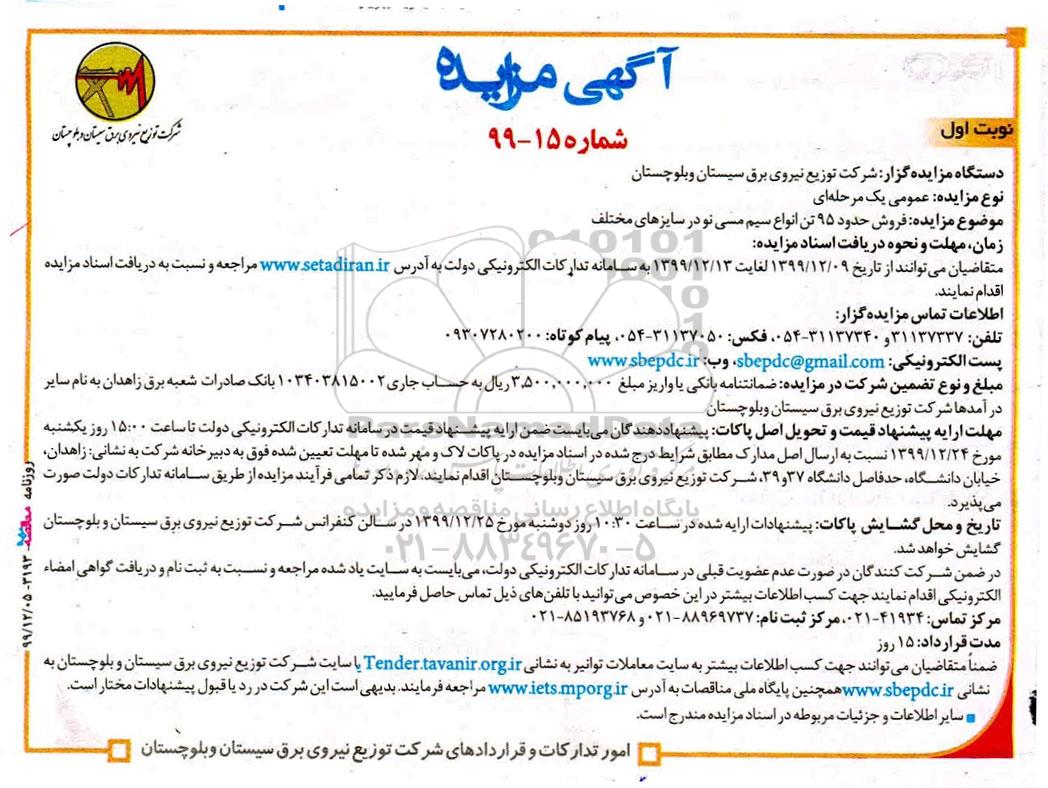 آگهی مزایده
شرکت توزیع نیروی برق سیستان و بلوچستان
شماره ۱۵-۹۹
نوبت اول
دستگاه مزایده‌گزار: شرکت توزیع نیروی برق سیستان وبلوچستان
نوع مزایده: عمومی یک مرحله‌ای
موضوع مزایده:فروش حدود ۹۵ تن انواع سیم مسی نو در سایزهای مختلف
زمان، مهلت و نحوه دریافت اسناد مزایده:
متقاضیان می‌توانند از تاریخ ۱۳۹۹/۱۲/۰۹ لغایت ۱۳۹۹/۱۲/۱۳ به سامانه تدارکات الکترونیکی دولت به آدرس www.setadiran.ir مراجعه و نسبت به دریافت اسناد مزایده
اقدام نمایند.
اطلاعات تماس مزایده‌گزار:
تلفن: ۳۱۱۳۷۳۳۷ و ۳۱۱۳۷۳۴۰-۰۵۴، فکس: ۳۱۱۳۷۰۵۰-۰۵۴، پیام کوتاه: ۰۹۳۰۷۲۸۰۲۰۰
پست الکترونیکی: sbepdc@gmail.com، وب: www.sbepdc.ir
مبلغ و نوع تضمین شرکت در مزایده: ضمانتنامه بانکی یا واریز مبلغ ۳,۵۰۰,۰۰۰,۰۰۰ ریال به حساب جاری ۱۰۳۴۰۳۸۱۵۰۰۲ بانک صادرات شعبه برق زاهدان به نام سایر
درآمدها شرکت توزیع نیروی برق سیستان وبلوچستان
مهلت ارایه پیشنهاد قیمت و تحویل اصل پاکات: پیشنهاددهندگان می‌بایست ضمن ارایه پیشنهاد قیمت در سامانه تدارکات الکترونیکی دولت تا ساعت ۱۵:۰۰ روز یکشنبه
مورخ ۱۳۹۹/۱۲/۲۴ نسبت به ارسال اصل مدارک مطابق شرایط درج شده در اسناد مزایده در پاکات لاک و مهر شده تا مهلت تعیین شده فوق به دبیرخانه شرکت به نشانی: زاهدان،
خیابان دانشگاه، حدفاصل دانشگاه ۳۷و۳۹، شرکت توزیع نیروی برق سیستان وبلوچستان اقدام نمایند. لازم ذکر تمامی فرآیند مزایده از طریق سامانه تدارکات دولت صورت
می‌پذیرد.
تاریخ و محل گشایش پاکات: پیشنهادات ارایه شده در ساعت ۱۰:۳۰ روز دوشنبه مورخ ۱۳۹۹/۱۲/۲۵ در سالن کنفرانس شرکت توزیع نیروی برق سیستان و بلوچستان
گشایش خواهد شد.
در ضمن شرکت کنندگان در صورت عدم عضویت قبلی در سامانه تدارکات الکترونیکی دولت، می‌بایست به سایت یاد شده مراجعه و نسبت به ثبت نام و دریافت گواهی امضاء
الکترونیکی اقدام نمایند جهت کسب اطلاعات بیشتر در این خصوص می‌توانید با تلفن‌های ذیل تماس حاصل فرمایید.
مرکز تماس: ۴۱۹۳۴-۰۲۱، مرکز ثبت نام: ۸۸۹۶۹۷۳۷-۰۲۱ و ۸۵۱۹۳۷۶۸-۰۲۱
مدت قرارداد: ۱۵ روز
ضمناً متقاضیان می‌توانند جهت کسب اطلاعات بیشتر به سایت معاملات توانیر به نشانی Tender.tavanir.org.ir یا سایت شرکت توزیع نیروی برق سیستان و بلوچستان به
نشانی www.sbepdc.ir همچنین پایگاه ملی مناقصات به آدرس www.iets.mporg.ir مراجعه فرمایند. بدیهی است این شرکت در رد یا قبول پیشنهادات مختار است.
سایر اطلاعات و جزئیات مربوطه در اسناد مزایده مندرج است.
امور تدارکات و قراردادهای شرکت توزیع نیروی برق سیستان وبلوچستان
روزنامه مناقصه ۳۱۹۳ - ۹۹/۱۲/۰۵
ParsNamadData
پایگاه اطلاع رسانی مناقصه و مزایده
۰۲۱-۸۸۳۴۹۶۷۰-۵